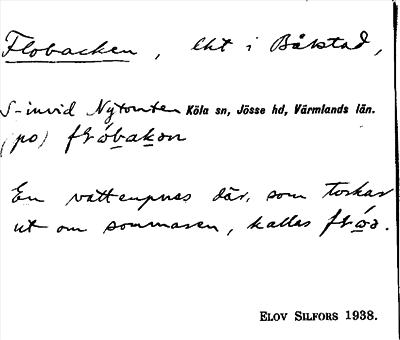 Flobacken, lht i Båkstad,
S-invid Nytomten Köla sn, Jösse hd, Värmlands län.
(po) flóbakon
En vattenpuss där, som torkar
ut om sommaren, kallas
ELOV SILFORS 1938.